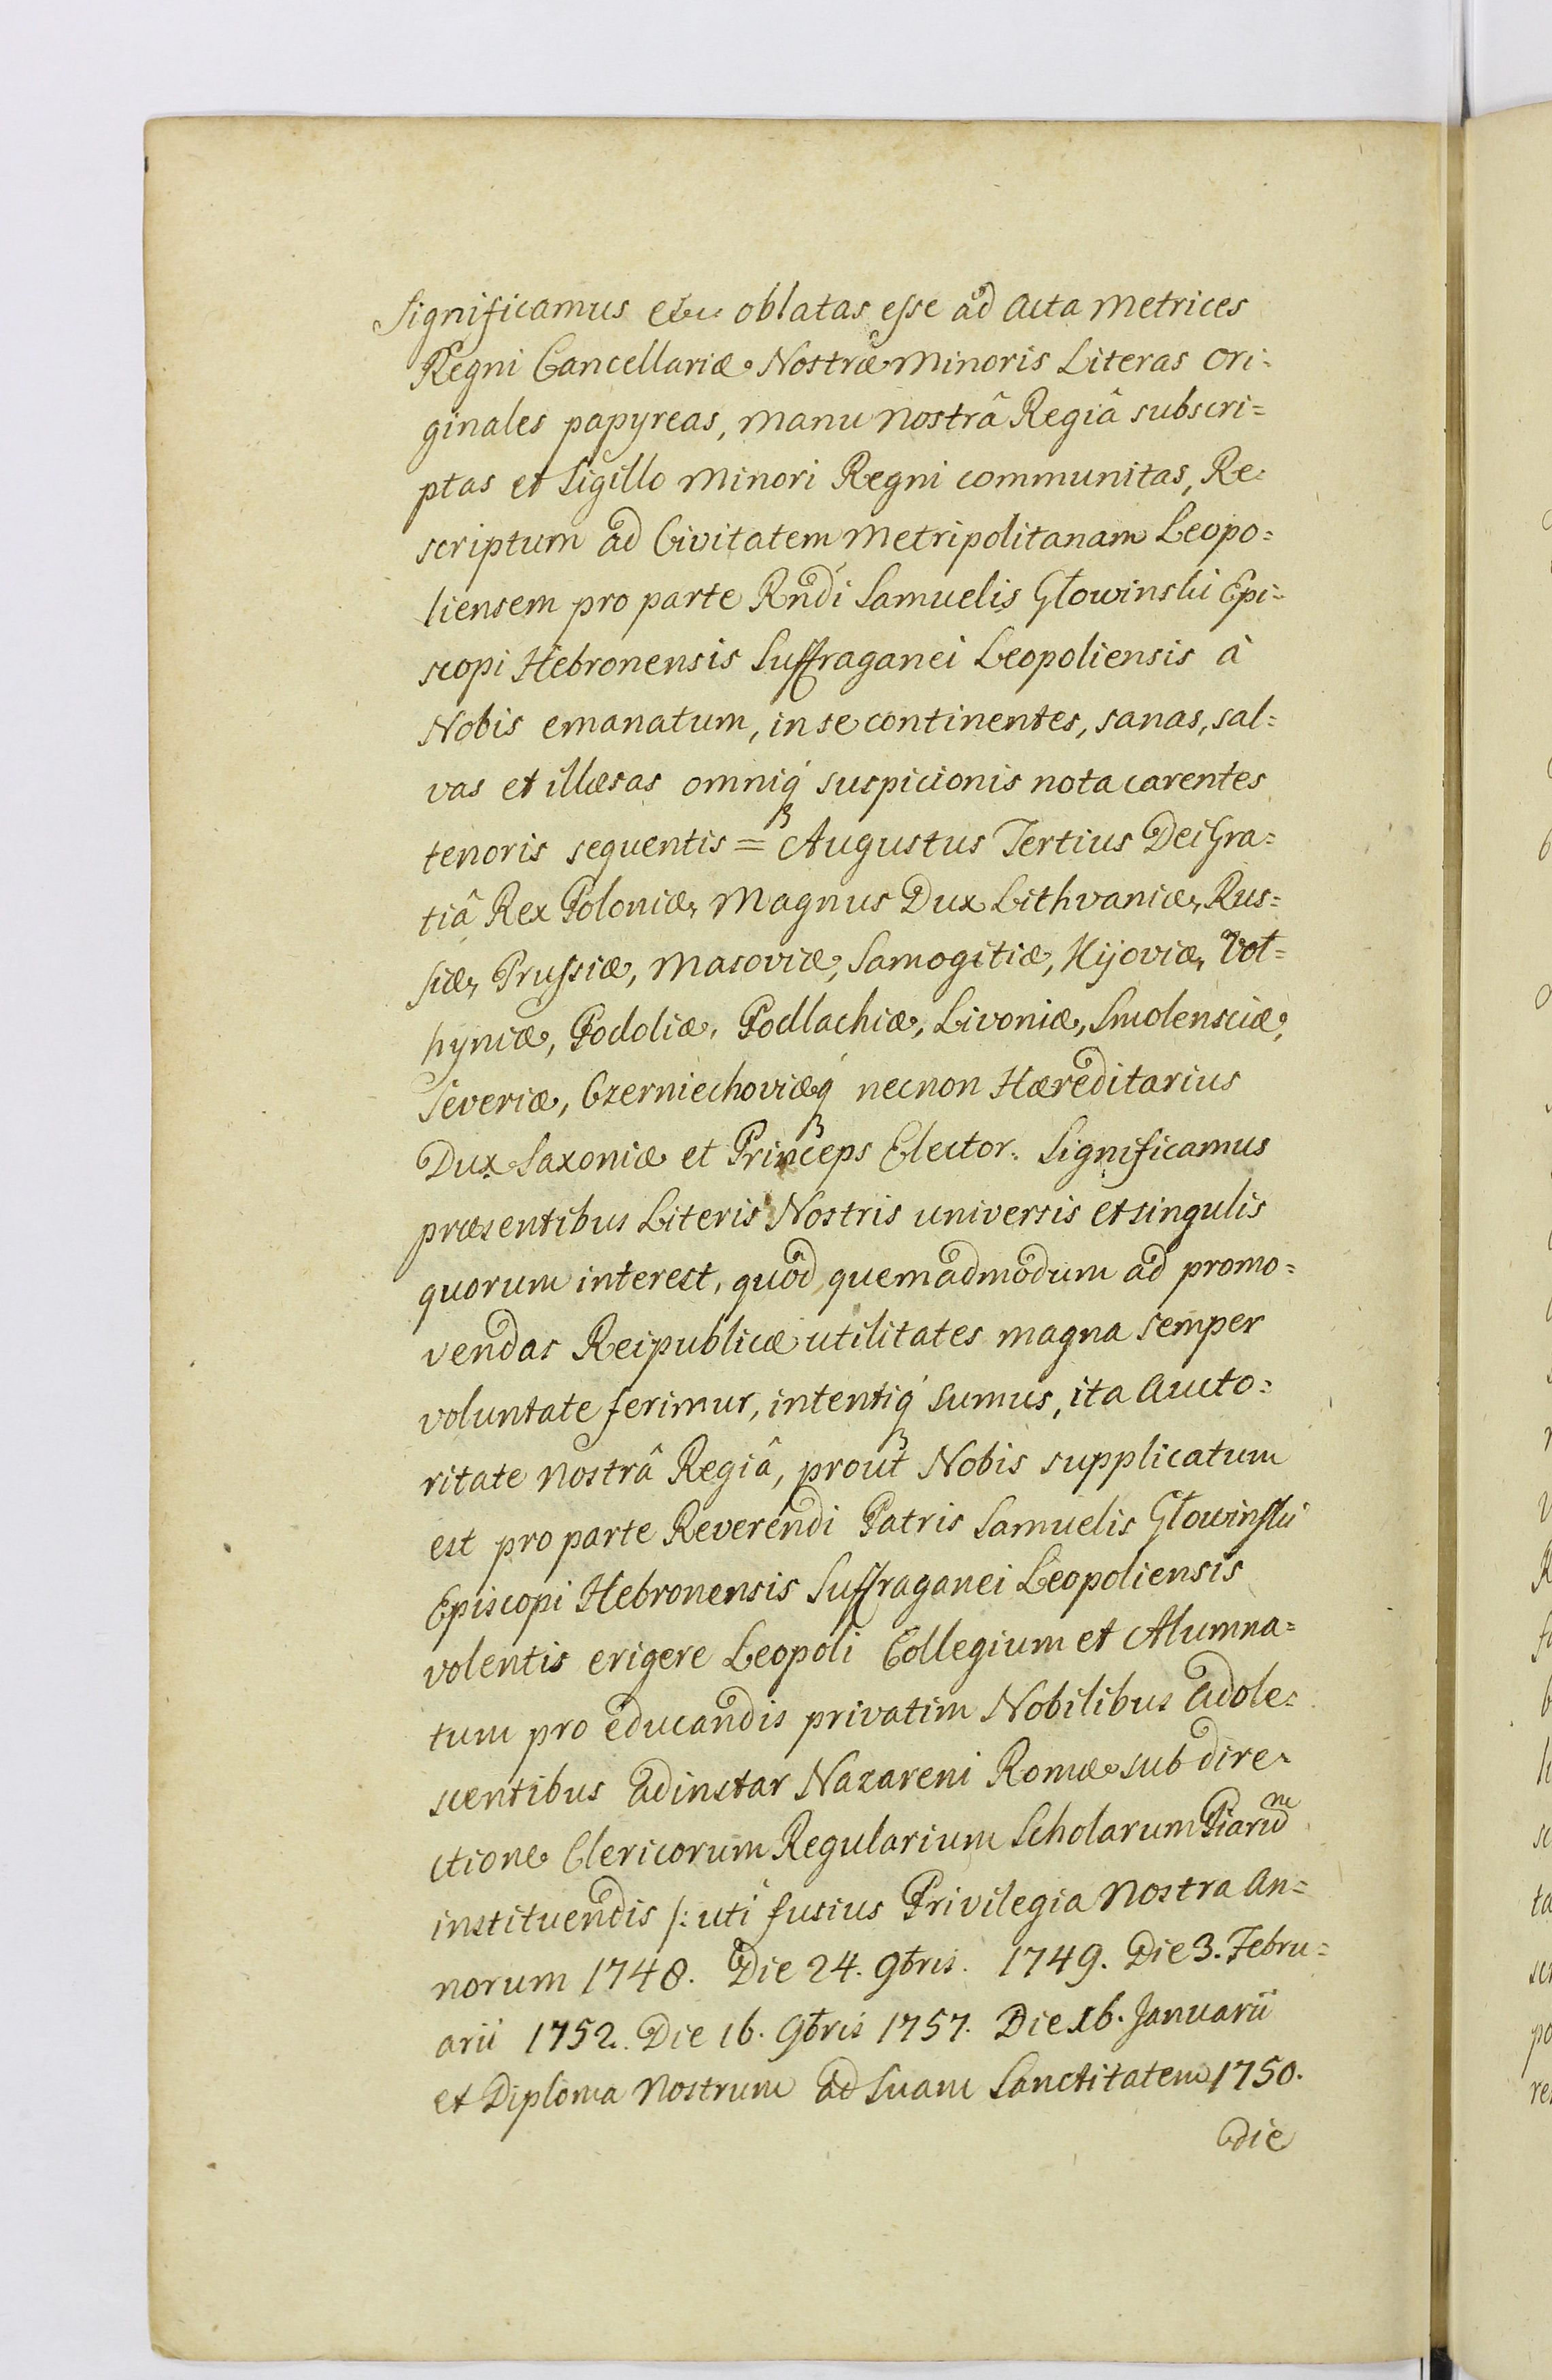 Significamus etc oblatas esse ad Acta Metrices
Regni Cancellariæ Nostræ Minoris Literas Ori=
ginales papyreas, manu nostrâ Regiâ subscri=
ptas et Sigillo Minori Regni communitas, Re=
scriptum ad Civitatem Metripolitanam Leopo=
liensem pro parte Rndi Samuelis Głowinski Epi=
scopi Hebronensis Suffraganei Leopoliensis à
Nobis emanatum, in se continentes, sanas, sal=
vas et illæsas omniq́ suspicionis nota carentes
tenoris sequentis = Augustus Tertius Dei Gra=
tiâ Rex Poloniæ, Magnus Dux Lithvaniæ, Rus=
siæ, Prussiæ, Masoviæ, Samogitiæ, Kijoviæ, Voł=
hyniæ, Podoliæ, Podlachiæ, Livoniæ, Smolensciæ,
Severiæ, Czerniechoviæq́ necnon Hæreditarius
Dux Saxoniæ et Princeps Elector. Significamus
præsentibus Literis Nostris universis et singulis
quorum interest, quòd, quemadmodum ad promo=
vendas Reipublicæ utilitates magna semper
voluntate ferimur, intentiq́ sumus, ita Aucto=
ritate nostrâ Regiâ, prout Nobis supplicatum
est pro parte Reverendi Patris Samuelis Głowinski
Episcopi Hebronensis Suffraganei Leopoliensis
volentis erigere Leopoli Collegium et Alumna=
tum pro educandis privatim Nobilibus Adole=
scentibus adinstar Nazareni Romæ sub dire=
ctione Clericorum Regularium Scholarum Piarum
instituendis /: uti fusius Privilegia Nostra An=
norum 1748. Die 24. 9bris. 1749. Die 3. Febru=
arii 1752. Die 16. 9bris 1757. Die 16. Januarii
et Diploma Nostrum ad Suam Sanctitatem 1750.
die